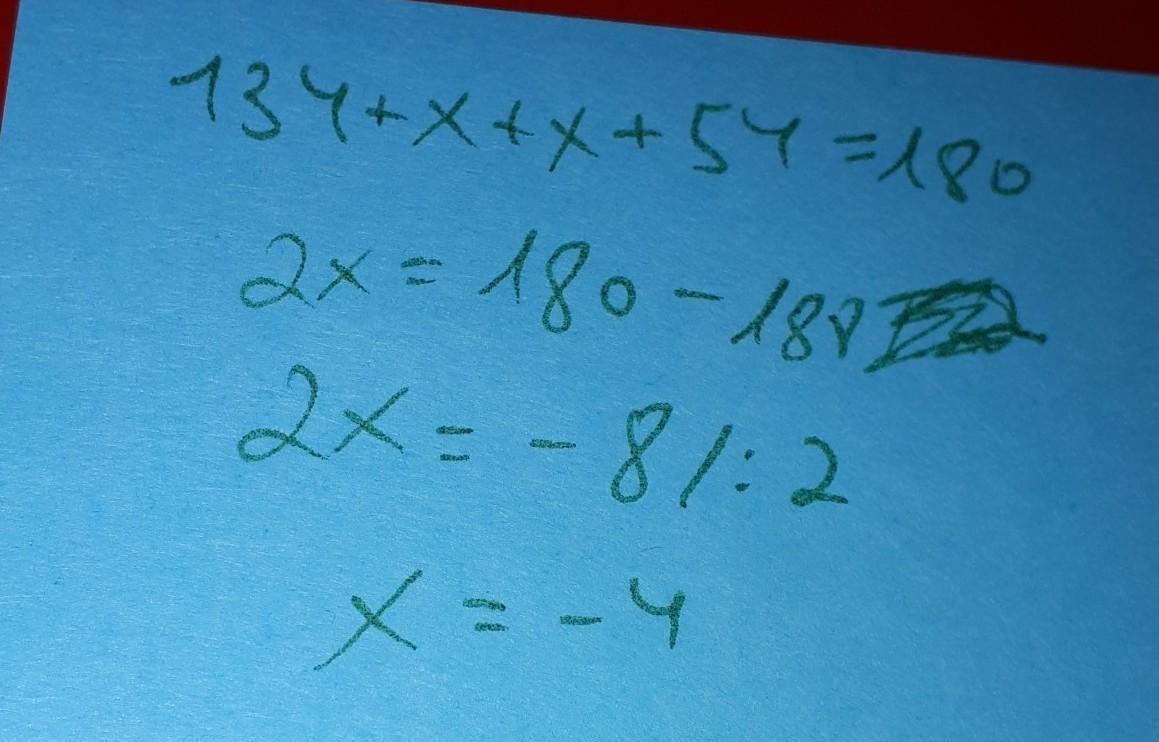 134+x+x+54=180
2x=180-188
2x=-8/:2
x=-4